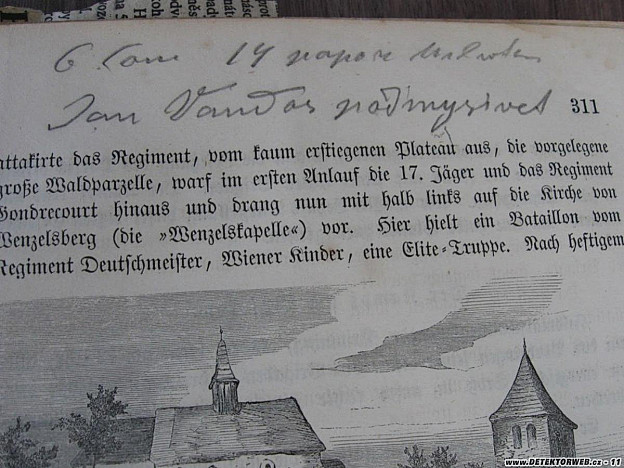 Jan Vandas podmysivet
311
attakirte das Regiment, vom kaum erstiegenen Plateau aus, die vorgelegene
große Waldparzelle, warf im ersten Anlauf die 17. Jäger und das Regiment
Gondrecourt hinaus und drang nun mit halb links auf die Kirche von
Wenzelsberg (die »Wenzelskapelle«) vor. Hier hielt ein Bataillon vom
Regiment Deutschmeister, Wiener Kinder, eine Elite-Truppe. Nach heftigem
www.DETEKTORWEB.cz - 11